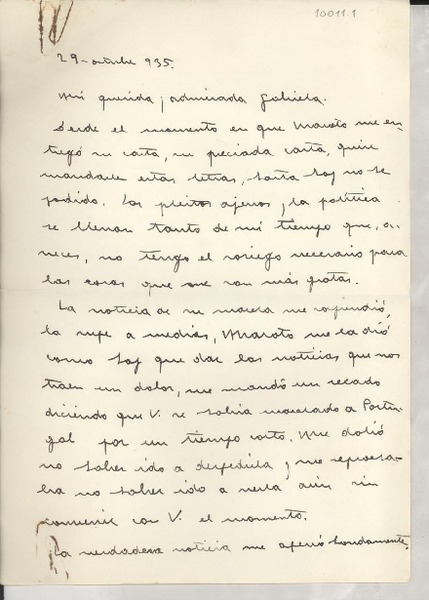 10011.1
29-octubre 935.
Mi querida y admirada Gabriela.
Desde el momento en que Maroto me en-
tregó su carta, su preciada carta, quise
mandarle estas letras, hasta hoy no he
podido. Los pleitos ajenos y la política
se llevan tanto de mi tiempo que, a ve-
ces, no tengo el sosiego necesario para
las cosas que me son más gratas.
La noticia de su marcha me sorprendió,
la supe a medias, Maroto me la dió
como hay que dar las noticias que nos
traen un dolor, me mandó un recado
diciendo que V. se había marchado a Portu-
gal por un tiempo corto. Me dolió
no haber ido a despedirla y me reprocha-
ba no haber ido a verla aún sin
convenir con V. el momento.
La verdadera noticia me apenó hondamente.